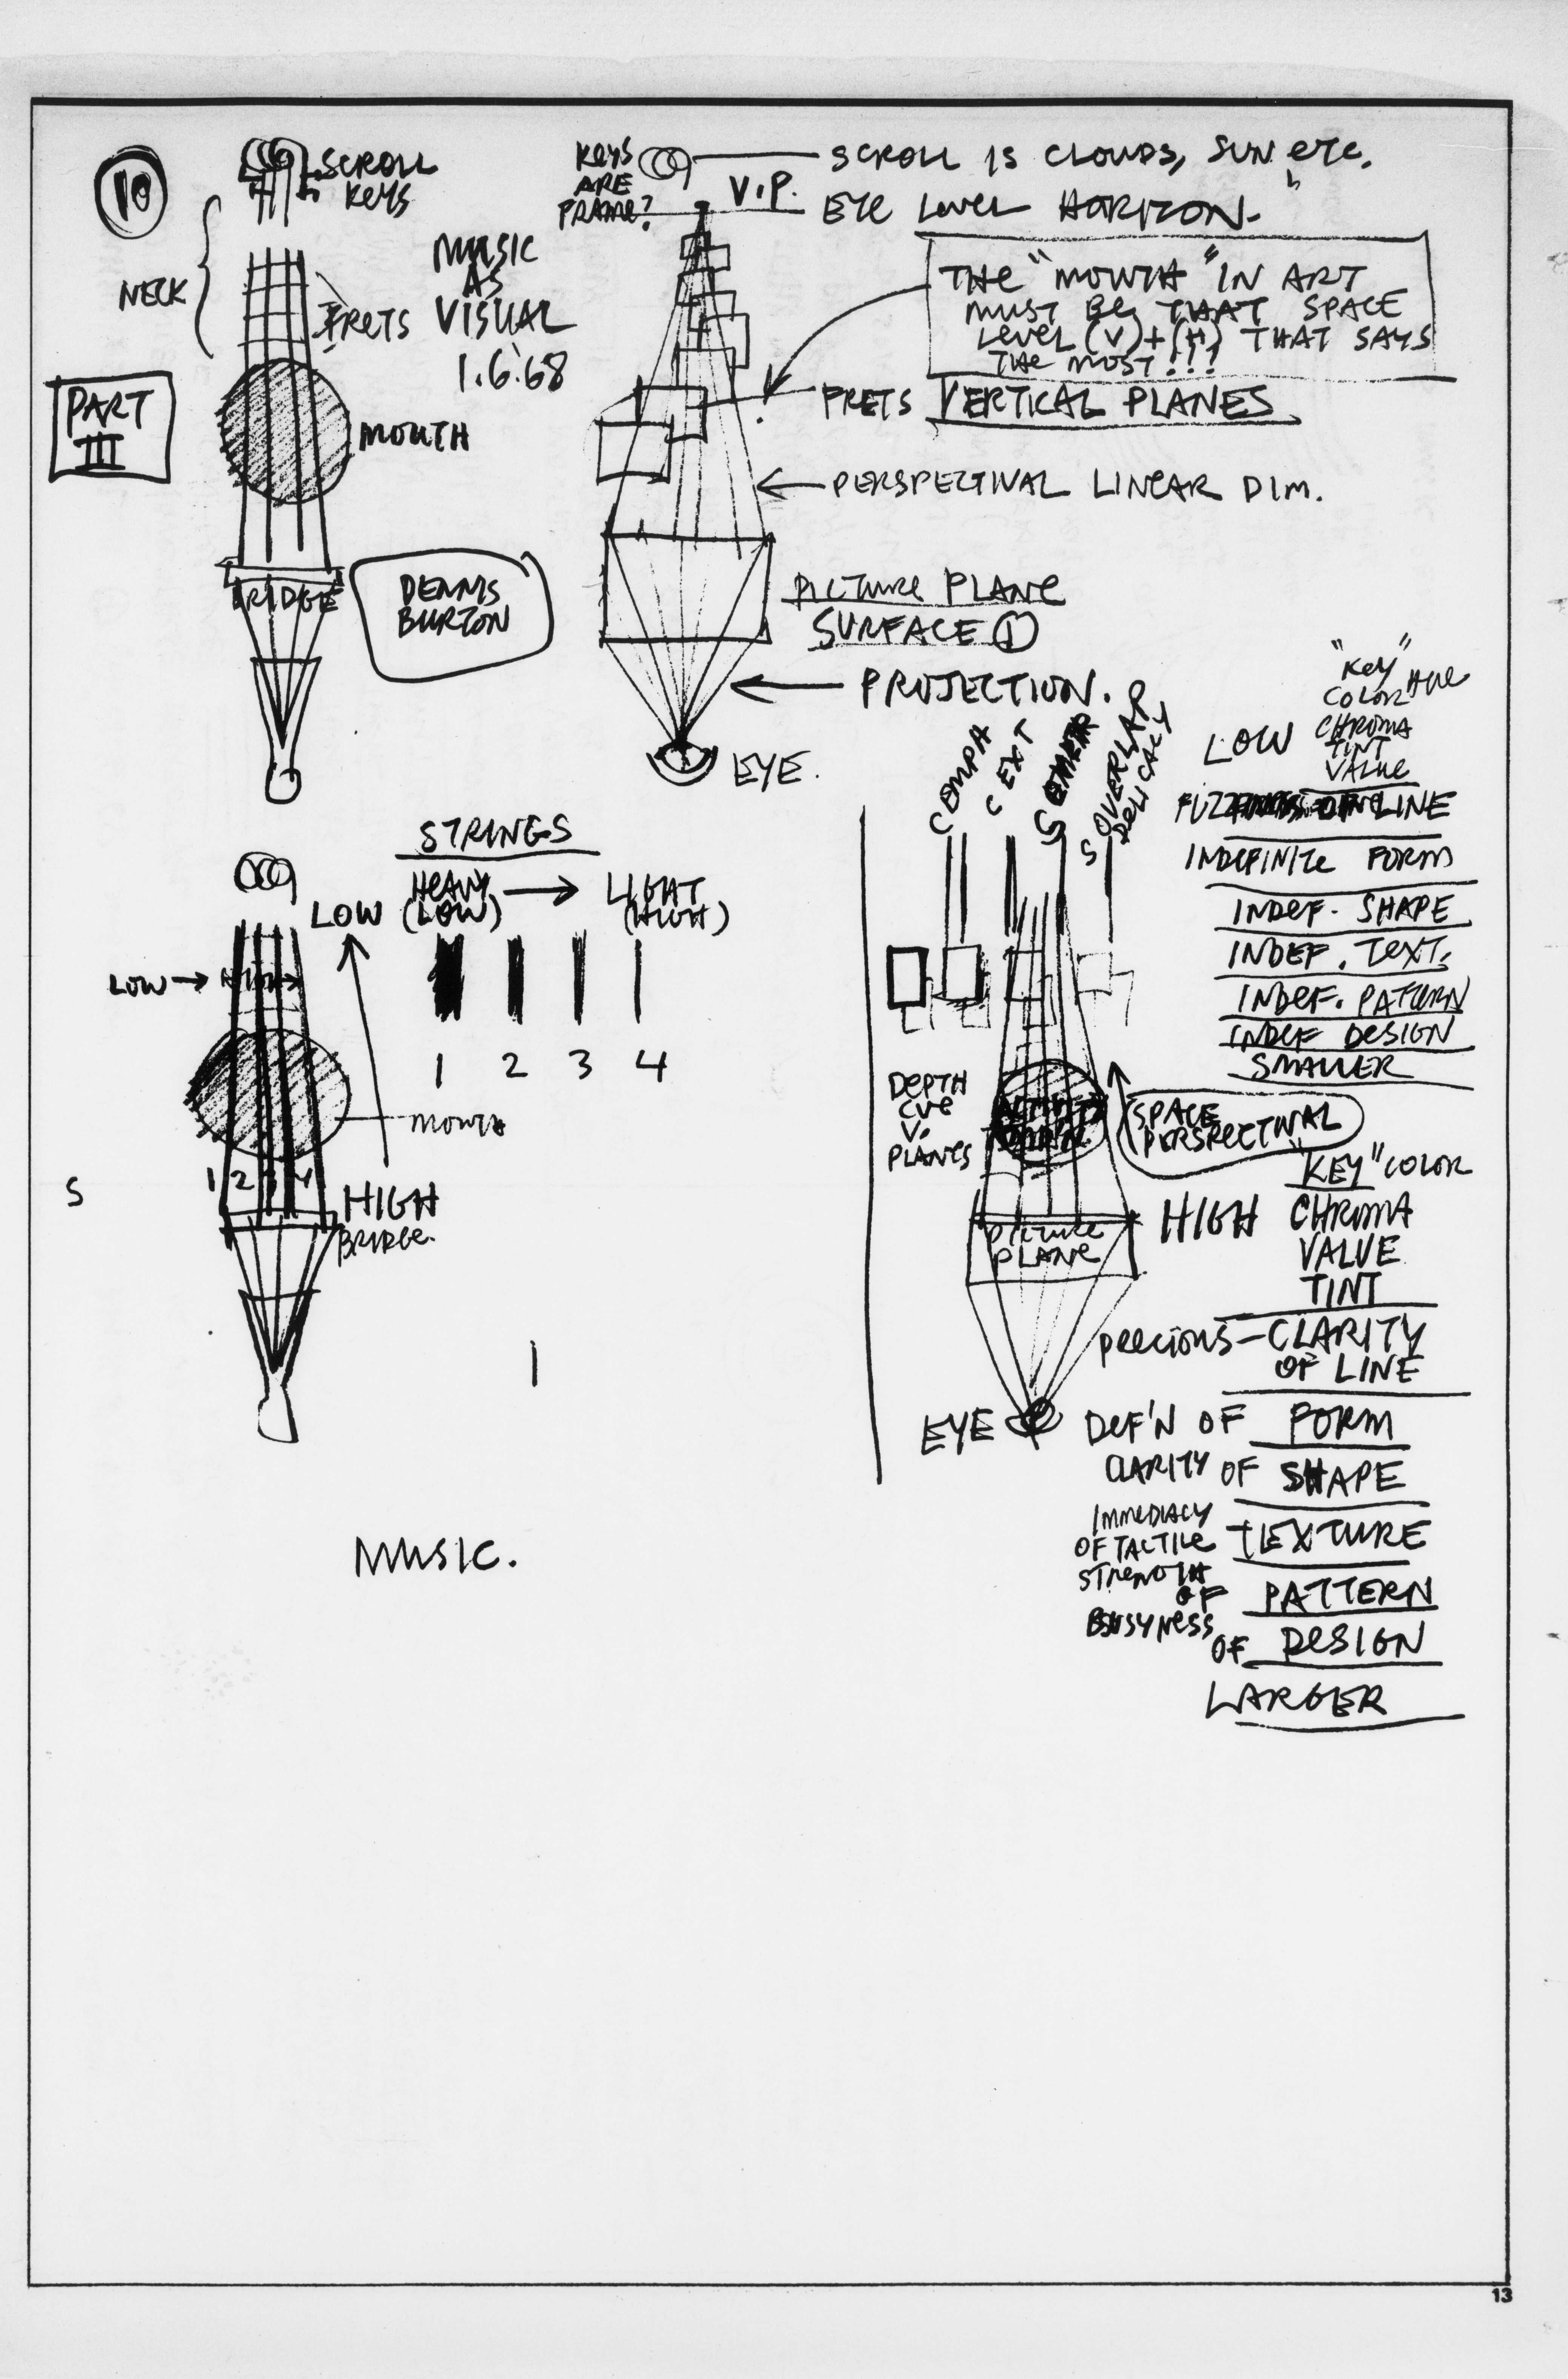 10
SCROLL
KEYS
NECK
FRETS
MUSIC
AS
VISUAL
1.6.68
PART
III
MOUTH
BRIDGE
DENNIS
BURTON
KEYS
ARE
FRAME?
V.P.
SCROLL IS CLOUDS, SUN etc.
EYE LEVEL HORIZON.
THE "MOUTH" IN ART
MUST BE THAT SPACE
LEVEL (V)+(H) THAT SAYS
THE MOST!!!
FRETS VERTICAL PLANES
PERSPECTIVAL LINEAR DIM.
PICTURE PLANE
SURFACE 1
PROJECTION.
EYE.
STRINGS
HEAVY → LIGHT
(LOW) (HIGH)
LOW
LOW → HIGH
1 2 3 4
MOUTH
1 2 3 4
S
HIGH
BRIDGE.
MUSIC.
OVERLAP
DELICACY
LOW
"KEY"
COLOR HUE
CHROMA
TINT
VALUE
LINE
INDEFINITE FORM
INDEF. SHAPE
INDEF. TEXT.
INDEF. PATTERN
INDEF DESIGN
SMALLER
DEPTH
CUE
V.
PLANES
SPACE
PERSPECTIVAL
PICTURE
PLANE
HIGH
"KEY" COLOR
CHROMA
VALUE
TINT
PRECIOUS — CLARITY
OF LINE
EYE
DEF'N OF FORM
CLARITY OF SHAPE
IMMEDIACY
OF TACTILE TEXTURE
STRENGTH
OF PATTERN
BUSYNESS
OF DESIGN
LARGER
13